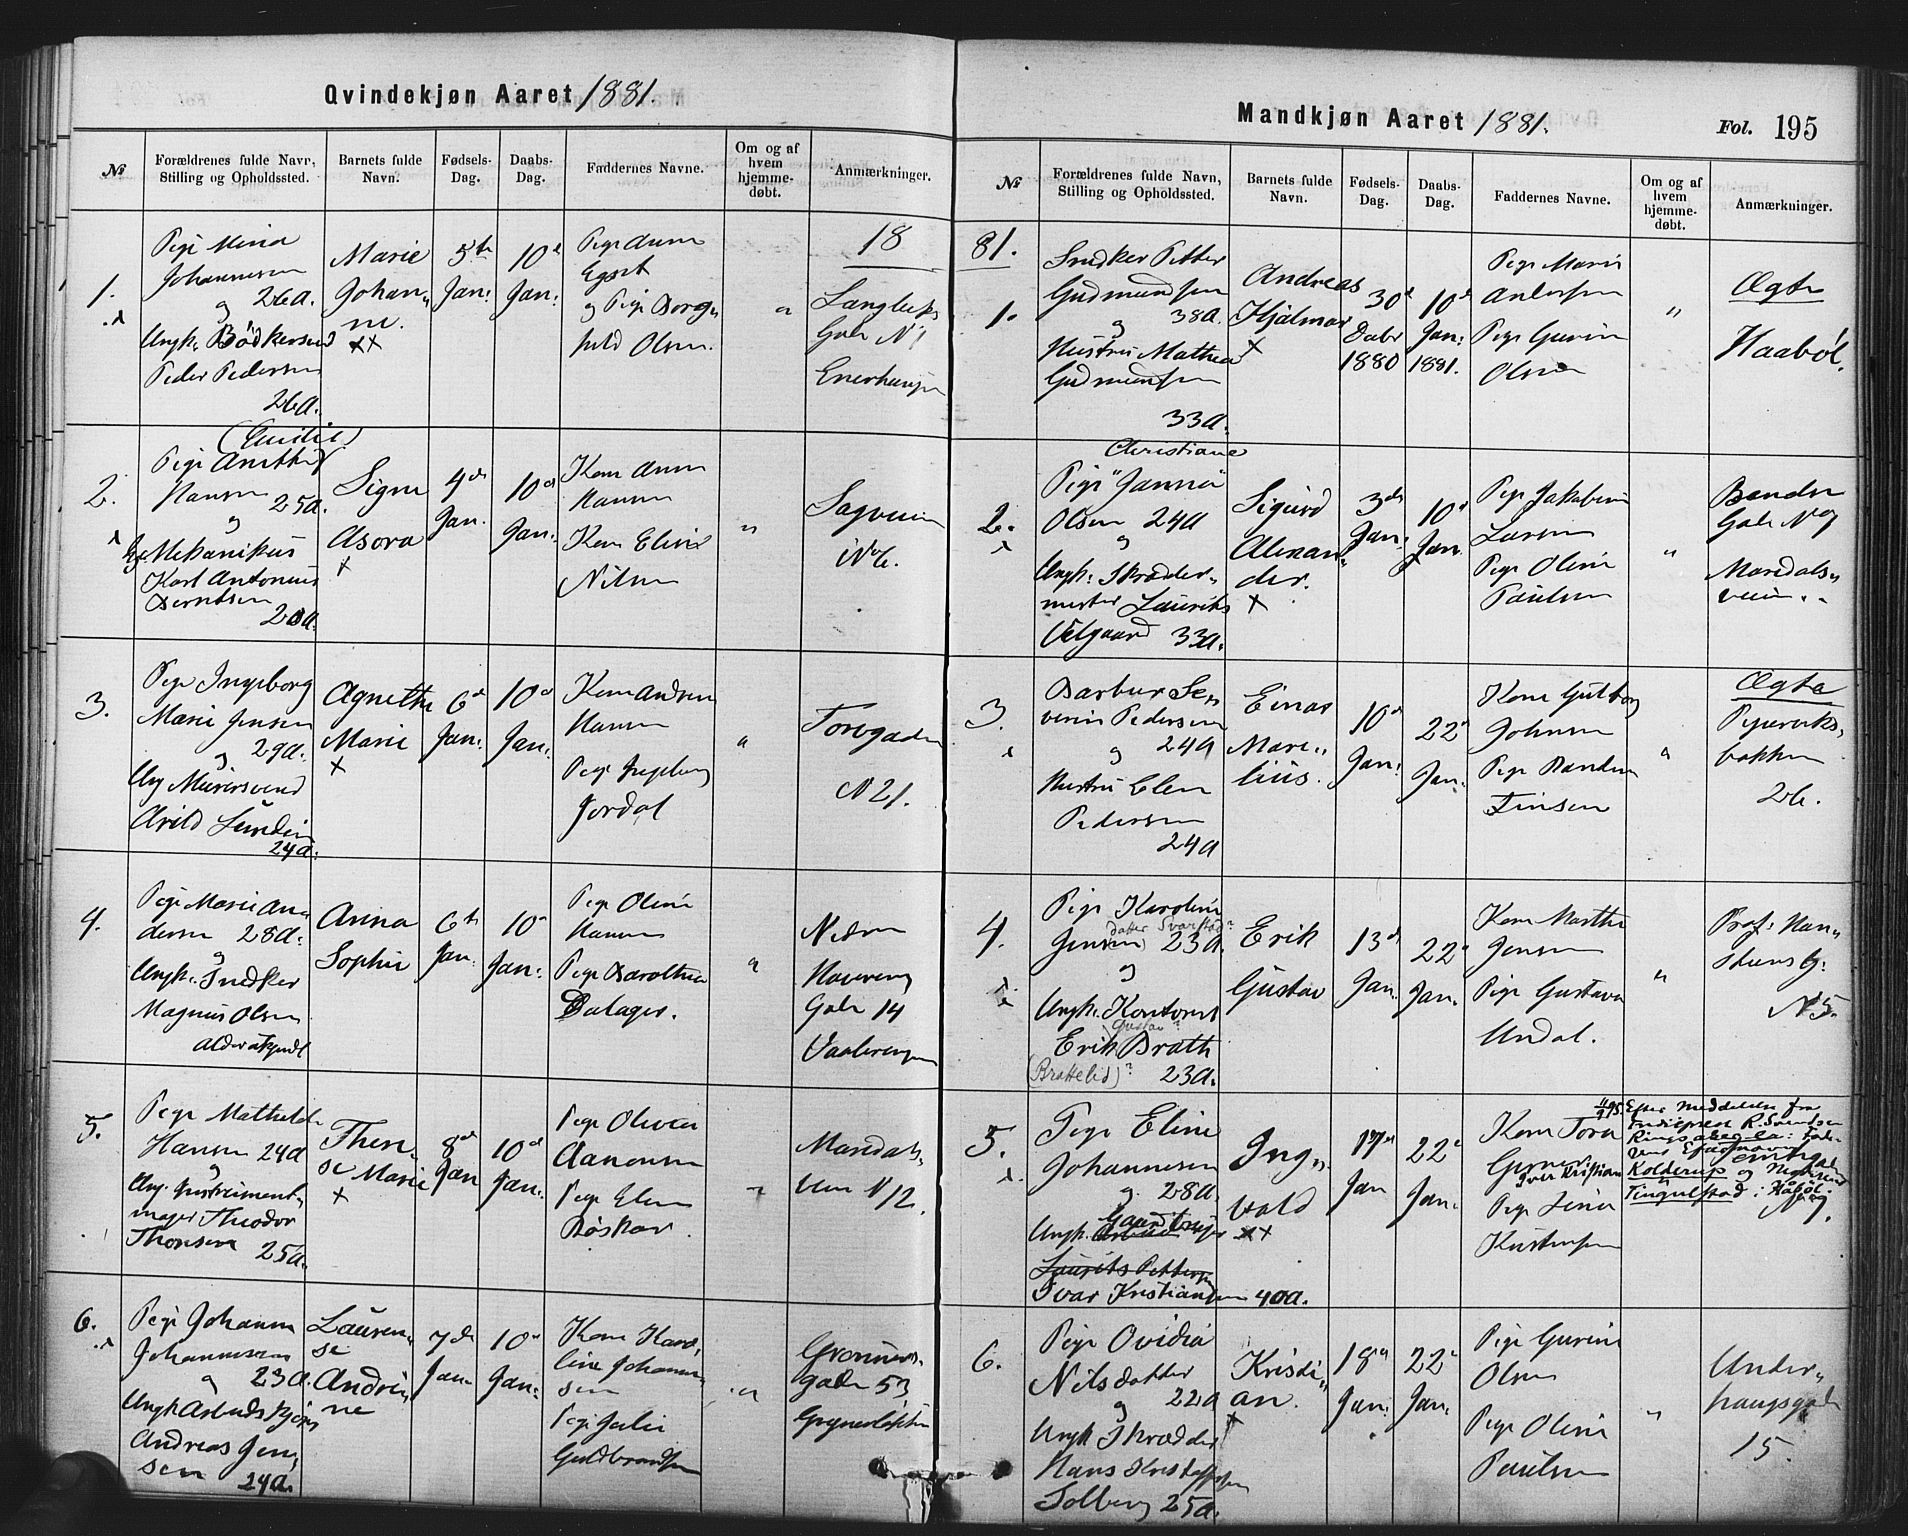 Qvindekjøn Aaret 1881.
№
Forældrenes fulde Navn,
Stilling og Opholdssted.
Barnets fulde
Navn.
Fødsels-
Dag.
Daabs-
Dag.
Faddernes Navne.
Om og af
hvem
hjemme-
døbt.
Anmærkninger.
1.
Pige
Johannesen
og 26 a.
Ungk. Bødkersvend
Peder Pedersen
26 a.
Marie
Johan„
ne.
xx
5te
Jan:
10de
Jan:
Pige Anna
og Pige Borg„
hild Olsen.
„
18
Gade N 1
Enerhaugen
2.
(Emilie)
Pige Anette
Hansen 25 a.
og
Mekanikus
Karl Antonius
Berntsen
Signe
Asora
x
4de
Jan.
10de
Jan:
Kone Anna
Hansen
Kone Eline
Nilsen
„
Sagveien
N 6.
3.
Pige Ingeborg
Marie Jensen
og 29 a.
Ung Murersvend
Arild
24 a.
Agnethe
Marie
x
6de
Jan:
10de
Jan:
Kone Andrea
Hansen
Pige Ingeborg
Jordal
„
Torvgaden
N 21.
4.
Pige Marie An„
dersen 28 a.
og
Ungk. Snedker
Magnus Olsen
Alder ubekjendt
Anna
Sophie
6te
Jan.
10de
Jan:
Pige Oline
Hansen
Pige Dorothea
Dalager.
„
Nedre
Gade 14
Vaalerengen
5.
Pige Mathilde
Hansen 24 a
og
Ung. Instrument„
mager Theodor
Thorsen 25 a.
There„
se Marie
x
8de
Jan
10de
Jan:
Pige Olivia
Aanonsen
Pige Elen
„
Maridals„
veien N 12.
6.
Pige Johanne
Johannesen
og 23 a.
Ungk Arbeids
Andreas Jen„
sen 24 a.
Lauren„
se
Andri„
ne
7de
Jan.
10de
Jan:
Kone Karo„
line Johanne„
sen
Pige Julie
Guldbrandsen
„
Grønners„
gade 53
Grünerløkken
Mandkjøn Aaret 1881.
Fol. 195
№
Forældrenes fulde Navn,
Stilling og Opholdssted.
Barnets fulde
Navn.
Fødsels-
Dag.
Daabs-
Dag.
Faddernes Navne.
Om og af
hvem
hjemme-
døbt.
Anmærkninger.
81.
1.
Snedker Petter
Gudmundsen
og 38 a.
Hustru Mathea
Gudmundsen
33 a.
Andreas
Hjalmar
x
30de
Decbr
1880
10de
Jan:
1881.
Pige Marie
Andersen
Pige Gurine
Olsen
„
Ægte
Haabøl.
2.
Christiane
Pige "Janna"
Olsen 24 a
og
Ungk. Skrædder„
mester Laurits
Velgaard 33 a.
Sigurd
Alexan„
der.
x
3de
Jan:
10de
Jan.
Pige Jakobine
Larsen
Pige Oline
Paulsen
„
Gade No 9
Maridals„
veien.
3.
Barbur Se„
verin Pedersen
og 24 a
Hustru Elen
Pedersen
24 a
Einar
Mari„
lius.
10de
Jan:
22de
Jan:
Kone Gulborg
Johnsen
Pige
Jensen
„
Ægte
Piperviks„
bakken
26.
4.
Pige Karoline
datter Svarstad?
Jensen 23 a.
og
Ungk. Kontorist
Gustav?
Erik Brath
(Brattelid)? 23 a.
Erik
Gustav
13de
Jan.
22de
Jan.
Kone Marthe
Jensen
Pige Gustava
Undal.
„
Prof. Han„
steens G.
N 5.
5.
Pige Eline
Johannesen
og 28 a.
Ungk.
Laurits Pettersen
Ivar Kristiansen 40 a.
Ing„
vald
xx
17de
Jan
22de
Jan.
Kone Tora
Iver Kristian
Pige Lina
Kristensen
Efter Meddelelse fra
Kolderup og
Tingulstad i Haabøl
6.
Pige Ovidia
Nilsdatter
og 22 a
Ungk Skrædder
Hans Kristoffersen
Solberg 25 a.
Kristi„
an.
x
18de
Jan:
22de
Jan:
Pige Gurine
Olsen
Pige Oline
Paulsen
„
Under„
haugsgade
15.